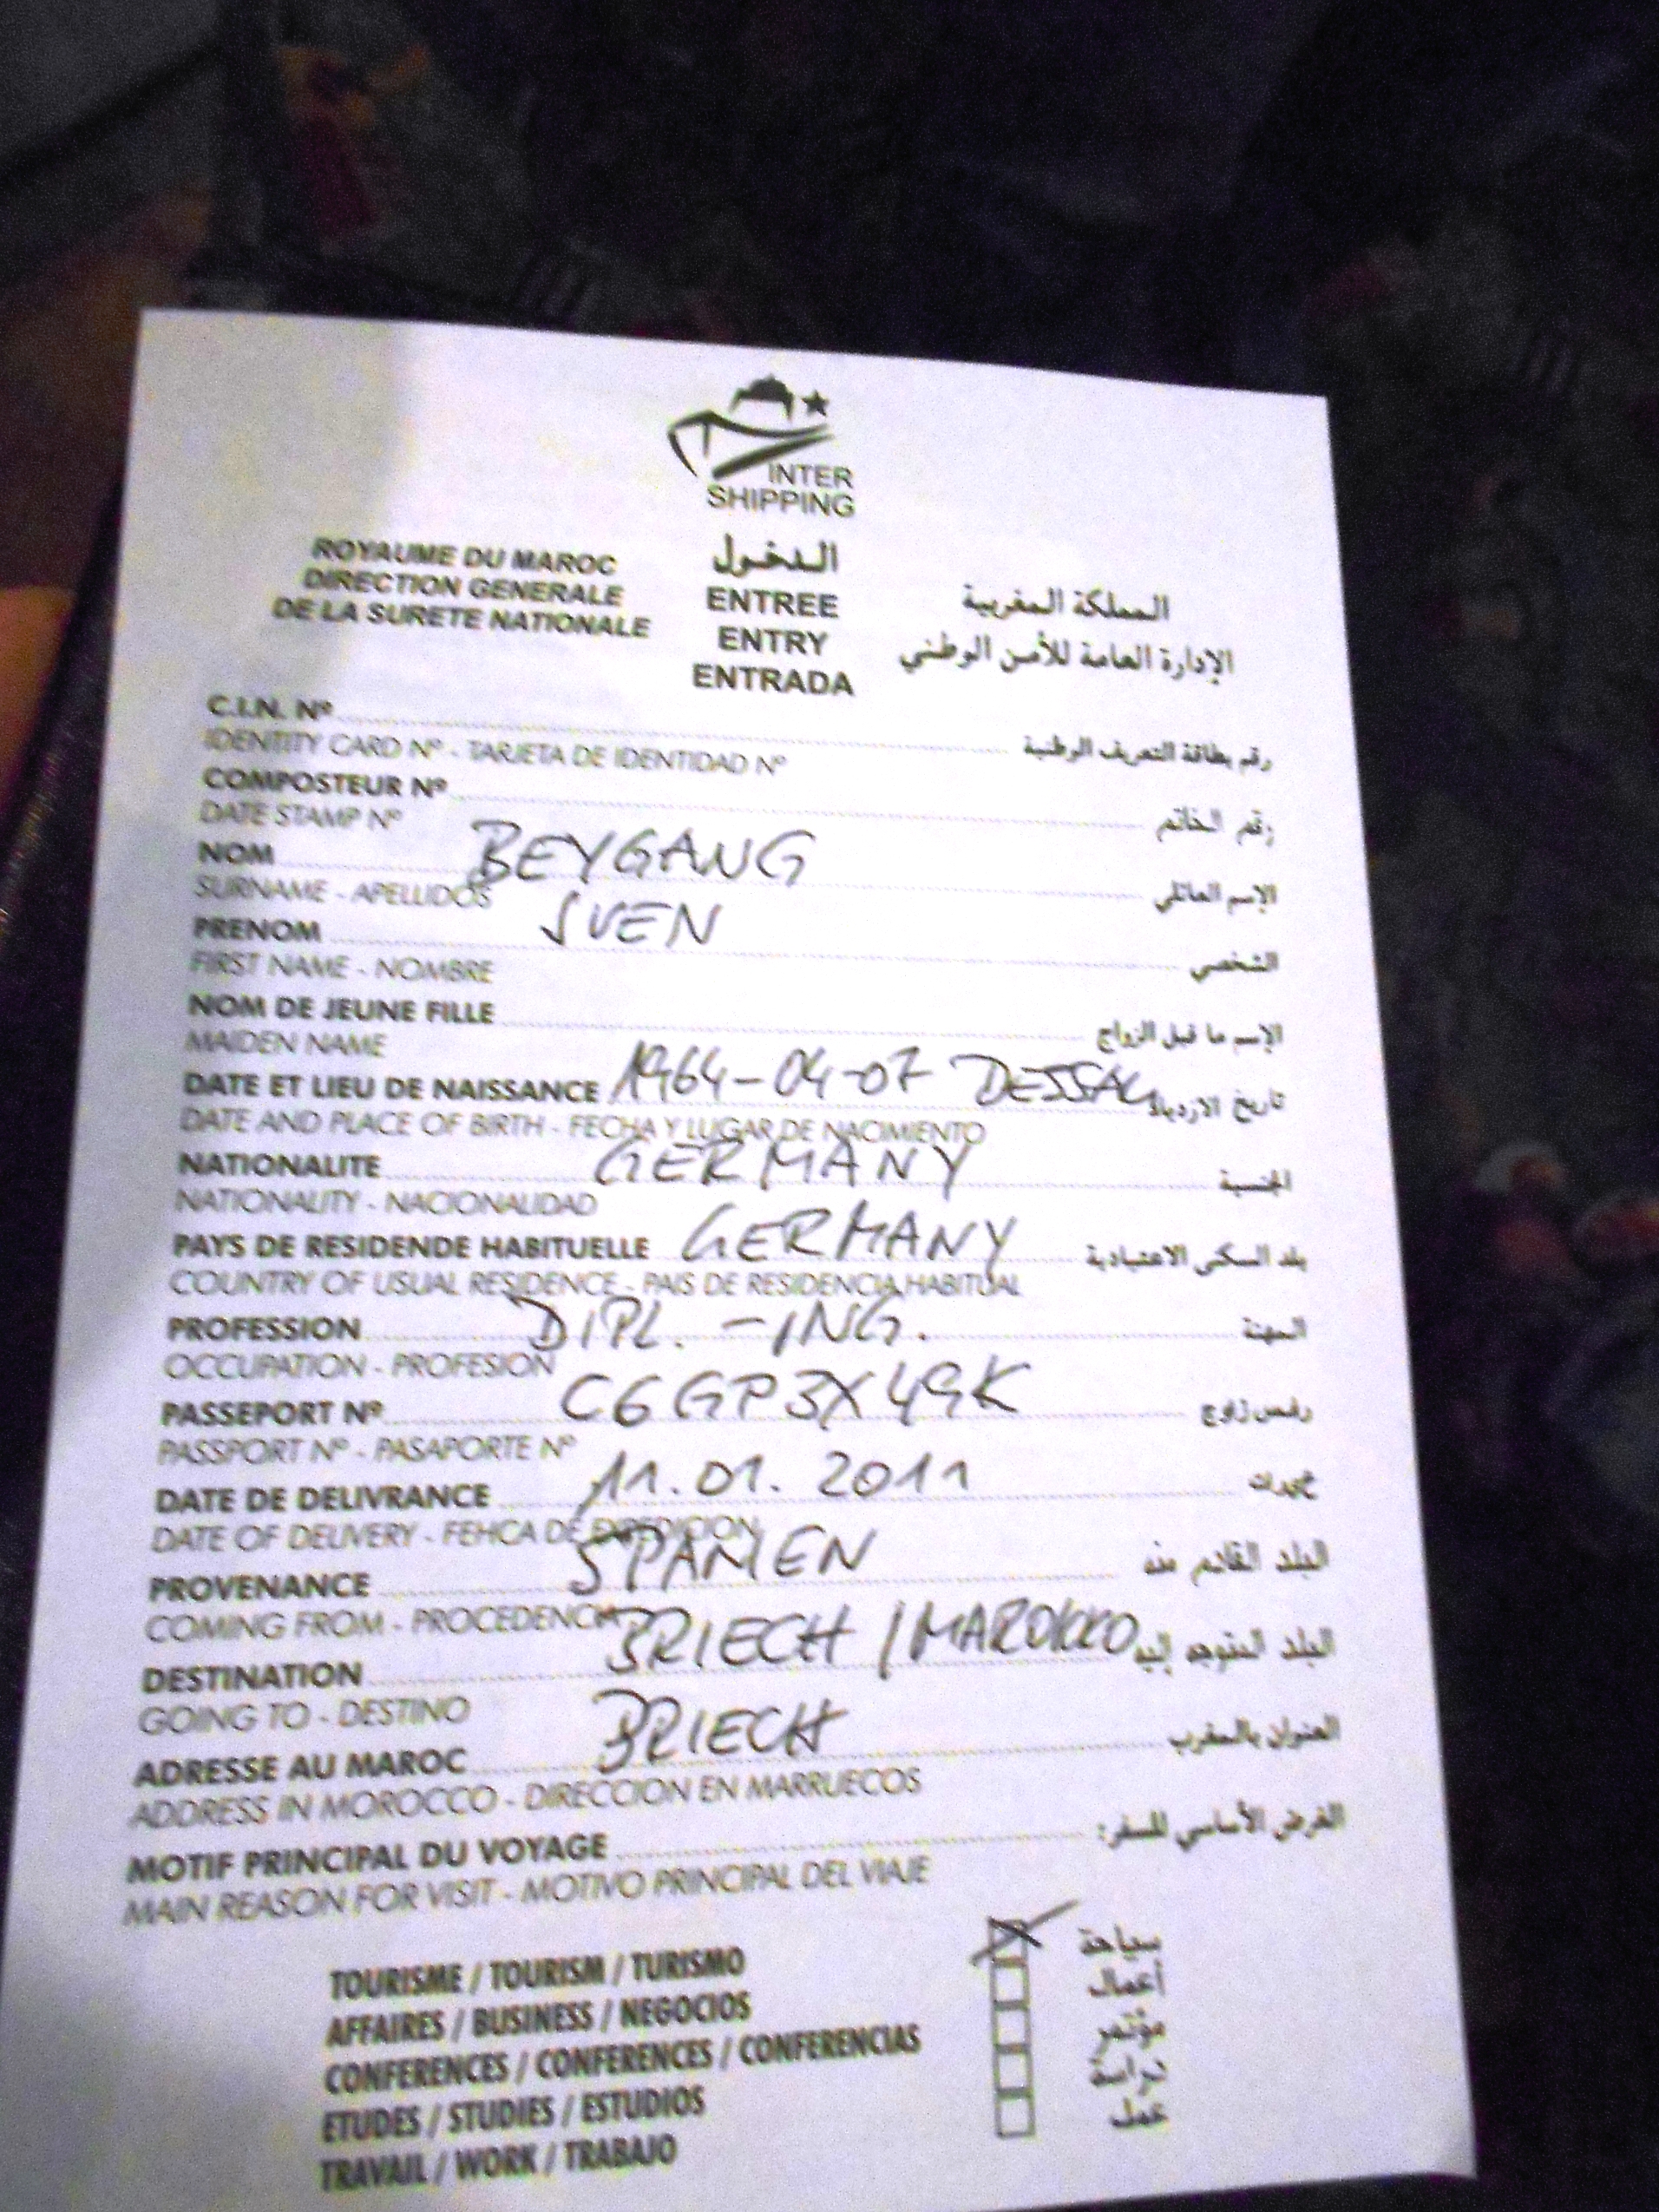 INTER
SHIPPING
ROYAUME DU MAROC
DIRECTION GENERALE
DE LA SURETE NATIONALE
الدخول
ENTREE
ENTRY
ENTRADA
المملكة المغربية
الإدارة العامة للأمن الوطني
C.I.N. Nº رقم بطاقة التعريف الوطنية
IDENTITY CARD Nº - TARJETA DE IDENTIDAD Nº
COMPOSTEUR Nº رقم الخاتم
DATE STAMP Nº
NOM BEYGANG الإسم العائلي
SURNAME - APELLIDOS
PRENOM SVEN الشخصي
FIRST NAME - NOMBRE
NOM DE JEUNE FILLE الإسم ما قبل الزواج
MAIDEN NAME
DATE ET LIEU DE NAISSANCE 1964-04-07 DESSAU تاريخ الازدياد
DATE AND PLACE OF BIRTH - FECHA Y LUGAR DE NACIMIENTO
NATIONALITE GERMANY الجنسية
NATIONALITY - NACIONALIDAD
PAYS DE RESIDENDE HABITUELLE GERMANY بلد السكنى الاعتيادية
COUNTRY OF USUAL RESIDENCE - PAIS DE RESIDENCIA HABITUAL
PROFESSION DIPL.-ING. المهنة
OCCUPATION - PROFESION
PASSEPORT Nº C6GP3X49K
PASSPORT Nº - PASAPORTE Nº
DATE DE DELIVRANCE 11.01.2011
DATE OF DELIVERY - FEHCA DE EXPEDICION
PROVENANCE SPANIEN البلد القادم منه
COMING FROM - PROCEDENCIA
DESTINATION BRIECH / MAROKKO البلد المتوجه إليه
GOING TO - DESTINO
ADRESSE AU MAROC BRIECH العنوان بالمغرب
ADDRESS IN MOROCCO - DIRECCION EN MARRUECOS
MOTIF PRINCIPAL DU VOYAGE الغرض الأساسي للسفر:
MAIN REASON FOR VISIT - MOTIVO PRINCIPAL DEL VIAJE
TOURISME / TOURISM / TURISMO سياحة
AFFAIRES / BUSINESS / NEGOCIOS أعمال
CONFERENCES / CONFERENCES / CONFERENCIAS مؤتمر
ETUDES / STUDIES / ESTUDIOS دراسة
TRAVAIL / WORK / TRABAJO عمل